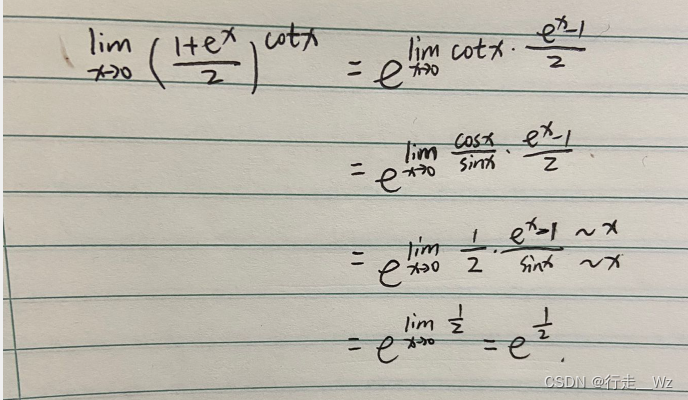 lim_{x→0} ((1+e^x)/2)^{cotx} = e^{lim_{x→0} cotx · (e^x-1)/2}
= e^{lim_{x→0} (cosx/sinx) · (e^x-1)/2}
= e^{lim_{x→0} (1/2) · (e^x-1 ~x)/(sinx ~x)}
= e^{lim_{x→0} 1/2} = e^{1/2}.
CSDN @行走_Wz